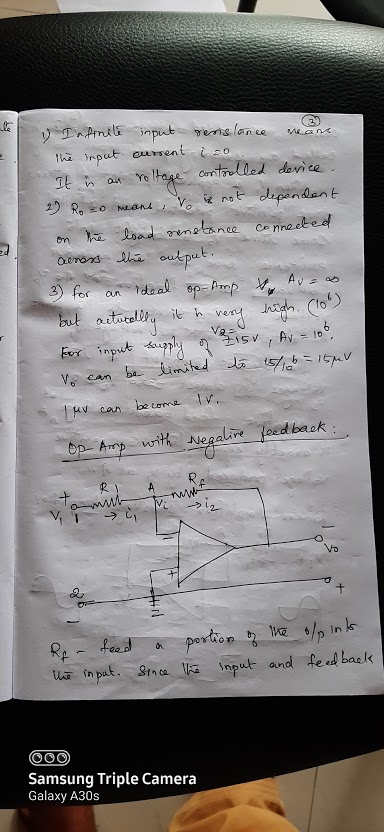 3
1) Infinite input resistance means
the input current i = 0
It is an voltage controlled device.
2) R₀ = 0 means, V₀ is not dependent
on the load resistance connected
across the output.
3) For an ideal op-Amp Av = ∞
but actually it is very high. (10⁶)
For input supply of V₂ = ±15V, Av = 10⁶.
V₀ can be limited to 15/10⁶ = 15μV
1μV can become 1V.
Op-Amp with Negative feedback:
R₁ A Rf
+ Vi
V₁ 1 → i₁ → i₂
− −
V₀
+
2 +
−
Rf - feed a portion of the o/p into
the input. Since the input and feedback
Samsung Triple Camera
Galaxy A30s